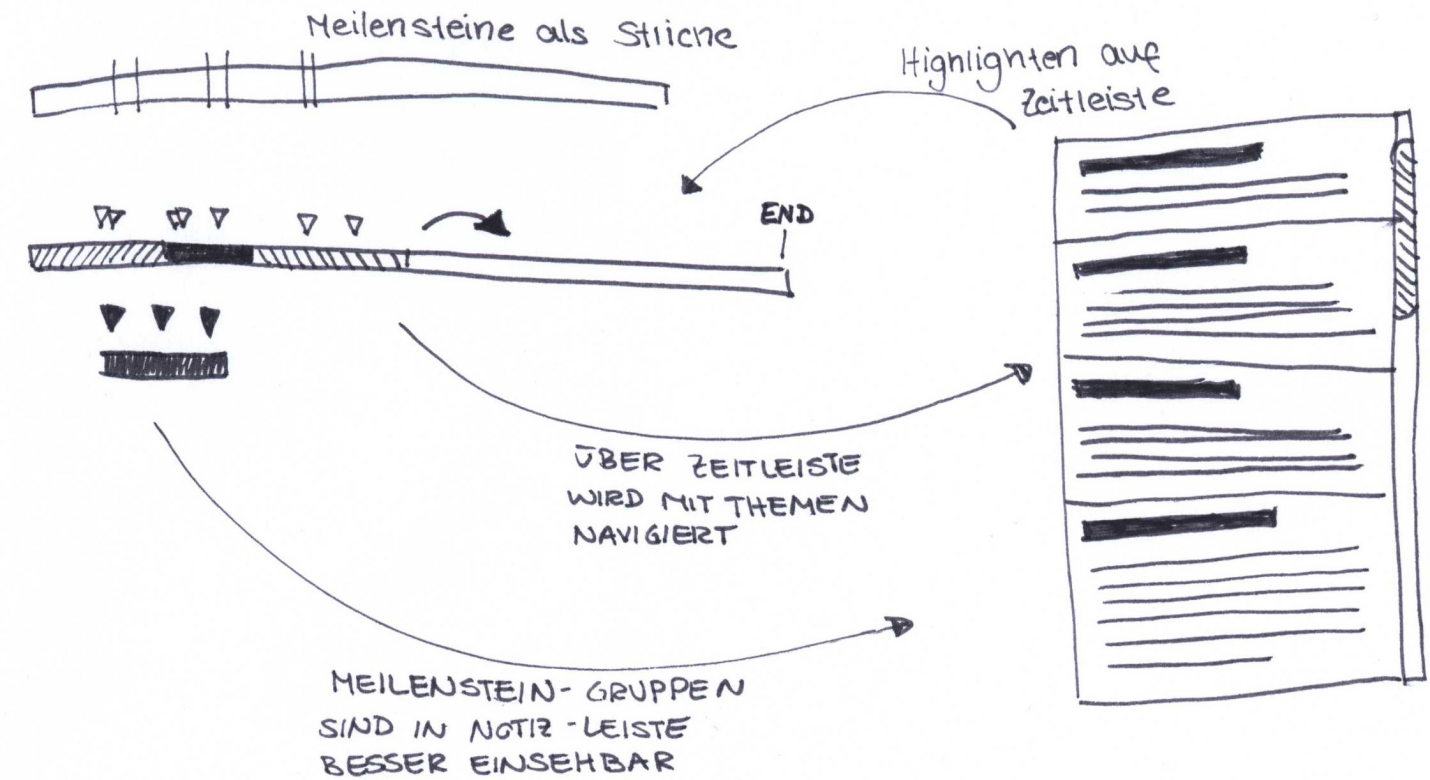 Meilensteine als Striche
Highlighten auf
Zeitleiste
END
ÜBER ZEITLEISTE
WIRD MIT THEMEN
NAVIGIERT
MEILENSTEIN-GRUPPEN
SIND IN NOTIZ-LEISTE
BESSER EINSEHBAR